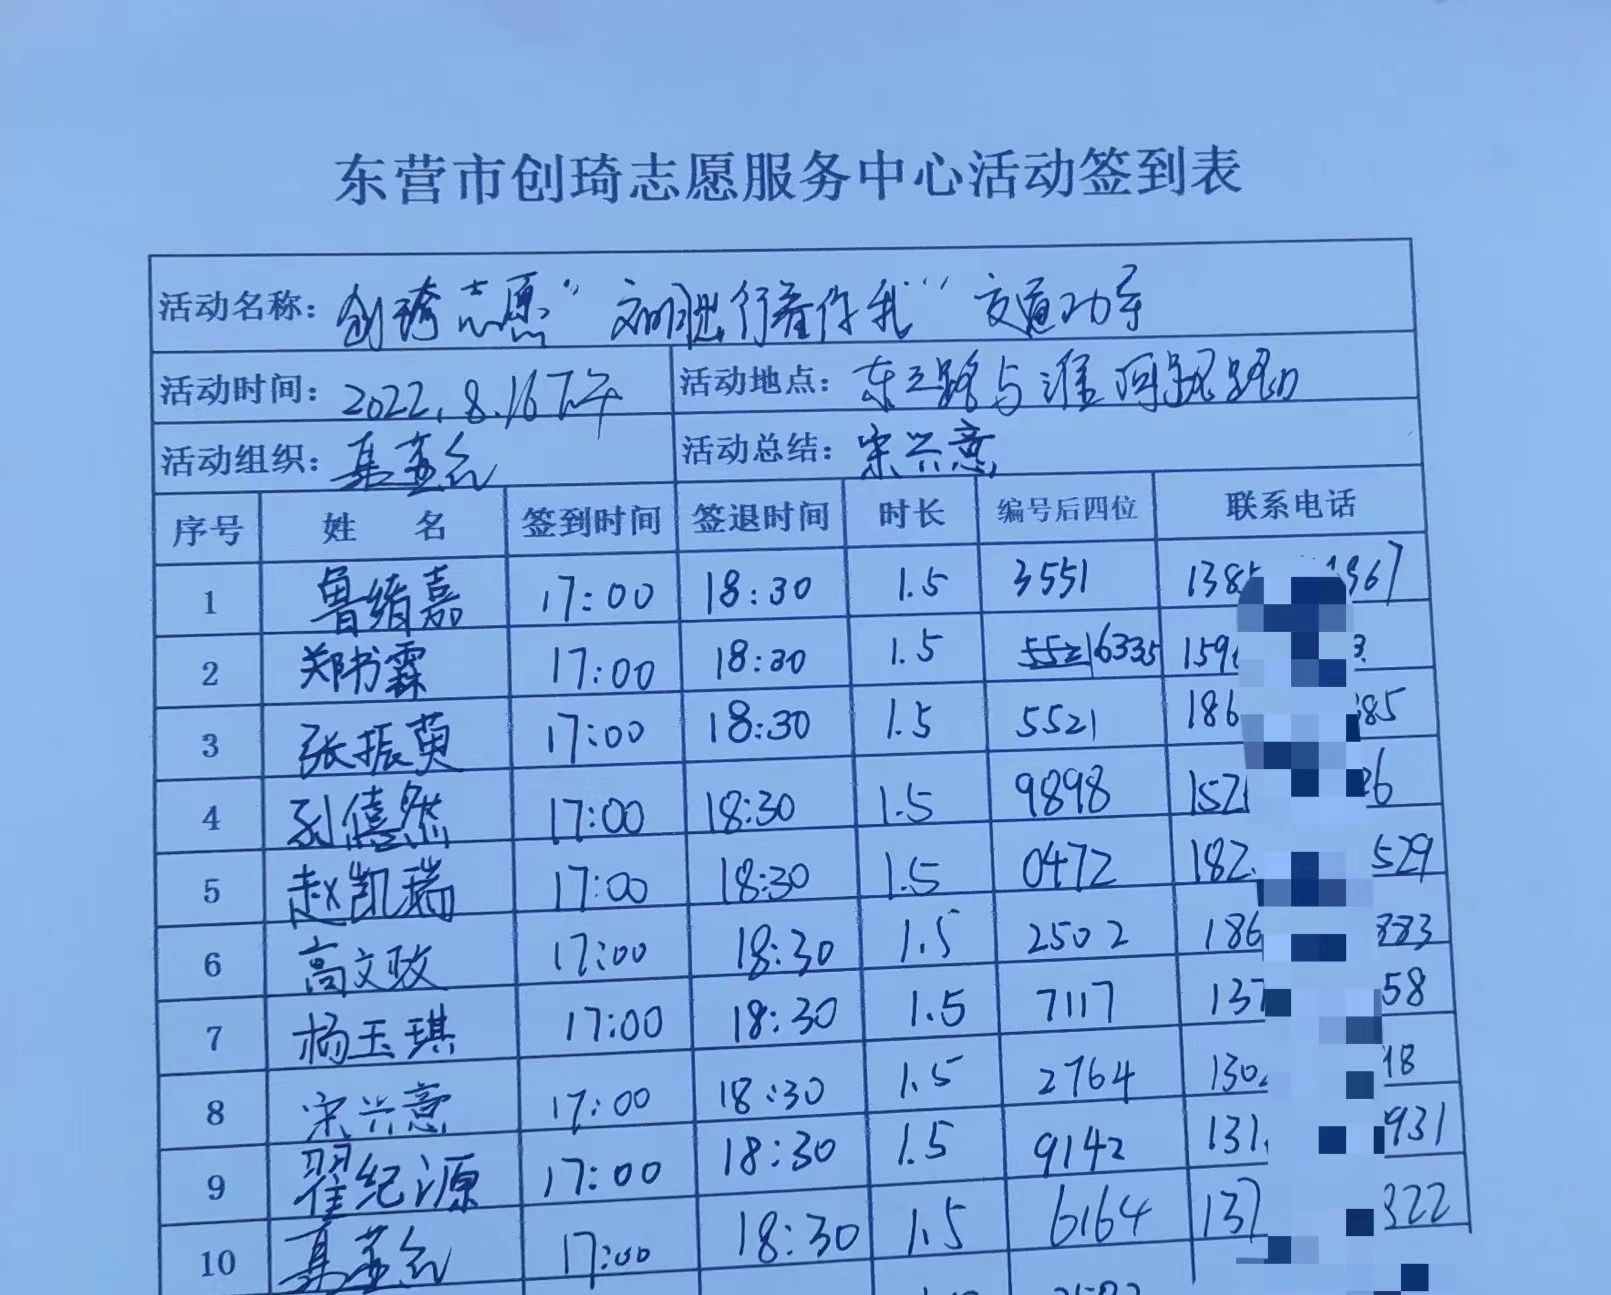 东营市创琦志愿服务中心活动签到表
活动名称：创琦志愿“文明出行看你我”交通劝导
活动时间：2022.8.16下午 活动地点：东三路与淮河路路口
活动组织： 活动总结：宋兴意
序号 姓名 签到时间 签退时间 时长 编号后四位 联系电话
1 鲁绪嘉 17:00 18:30 1.5 3551 138 967
2 郑书霖 17:00 18:30 1.5 6335 159 3
3 张振 17:00 18:30 1.5 5521 186 385
4 孙僖然 17:00 18:30 1.5 9898 152 26
5 赵凯瑞 17:00 18:30 1.5 0472 182 529
6 高文政 17:00 18:30 1.5 2502 186 883
7 杨玉琪 17:00 18:30 1.5 7117 137 58
8 宋兴意 17:00 18:30 1.5 2764 130 18
9 翟纪源 17:00 18:30 1.5 9142 131 931
10 17:00 18:30 1.5 6164 137 322